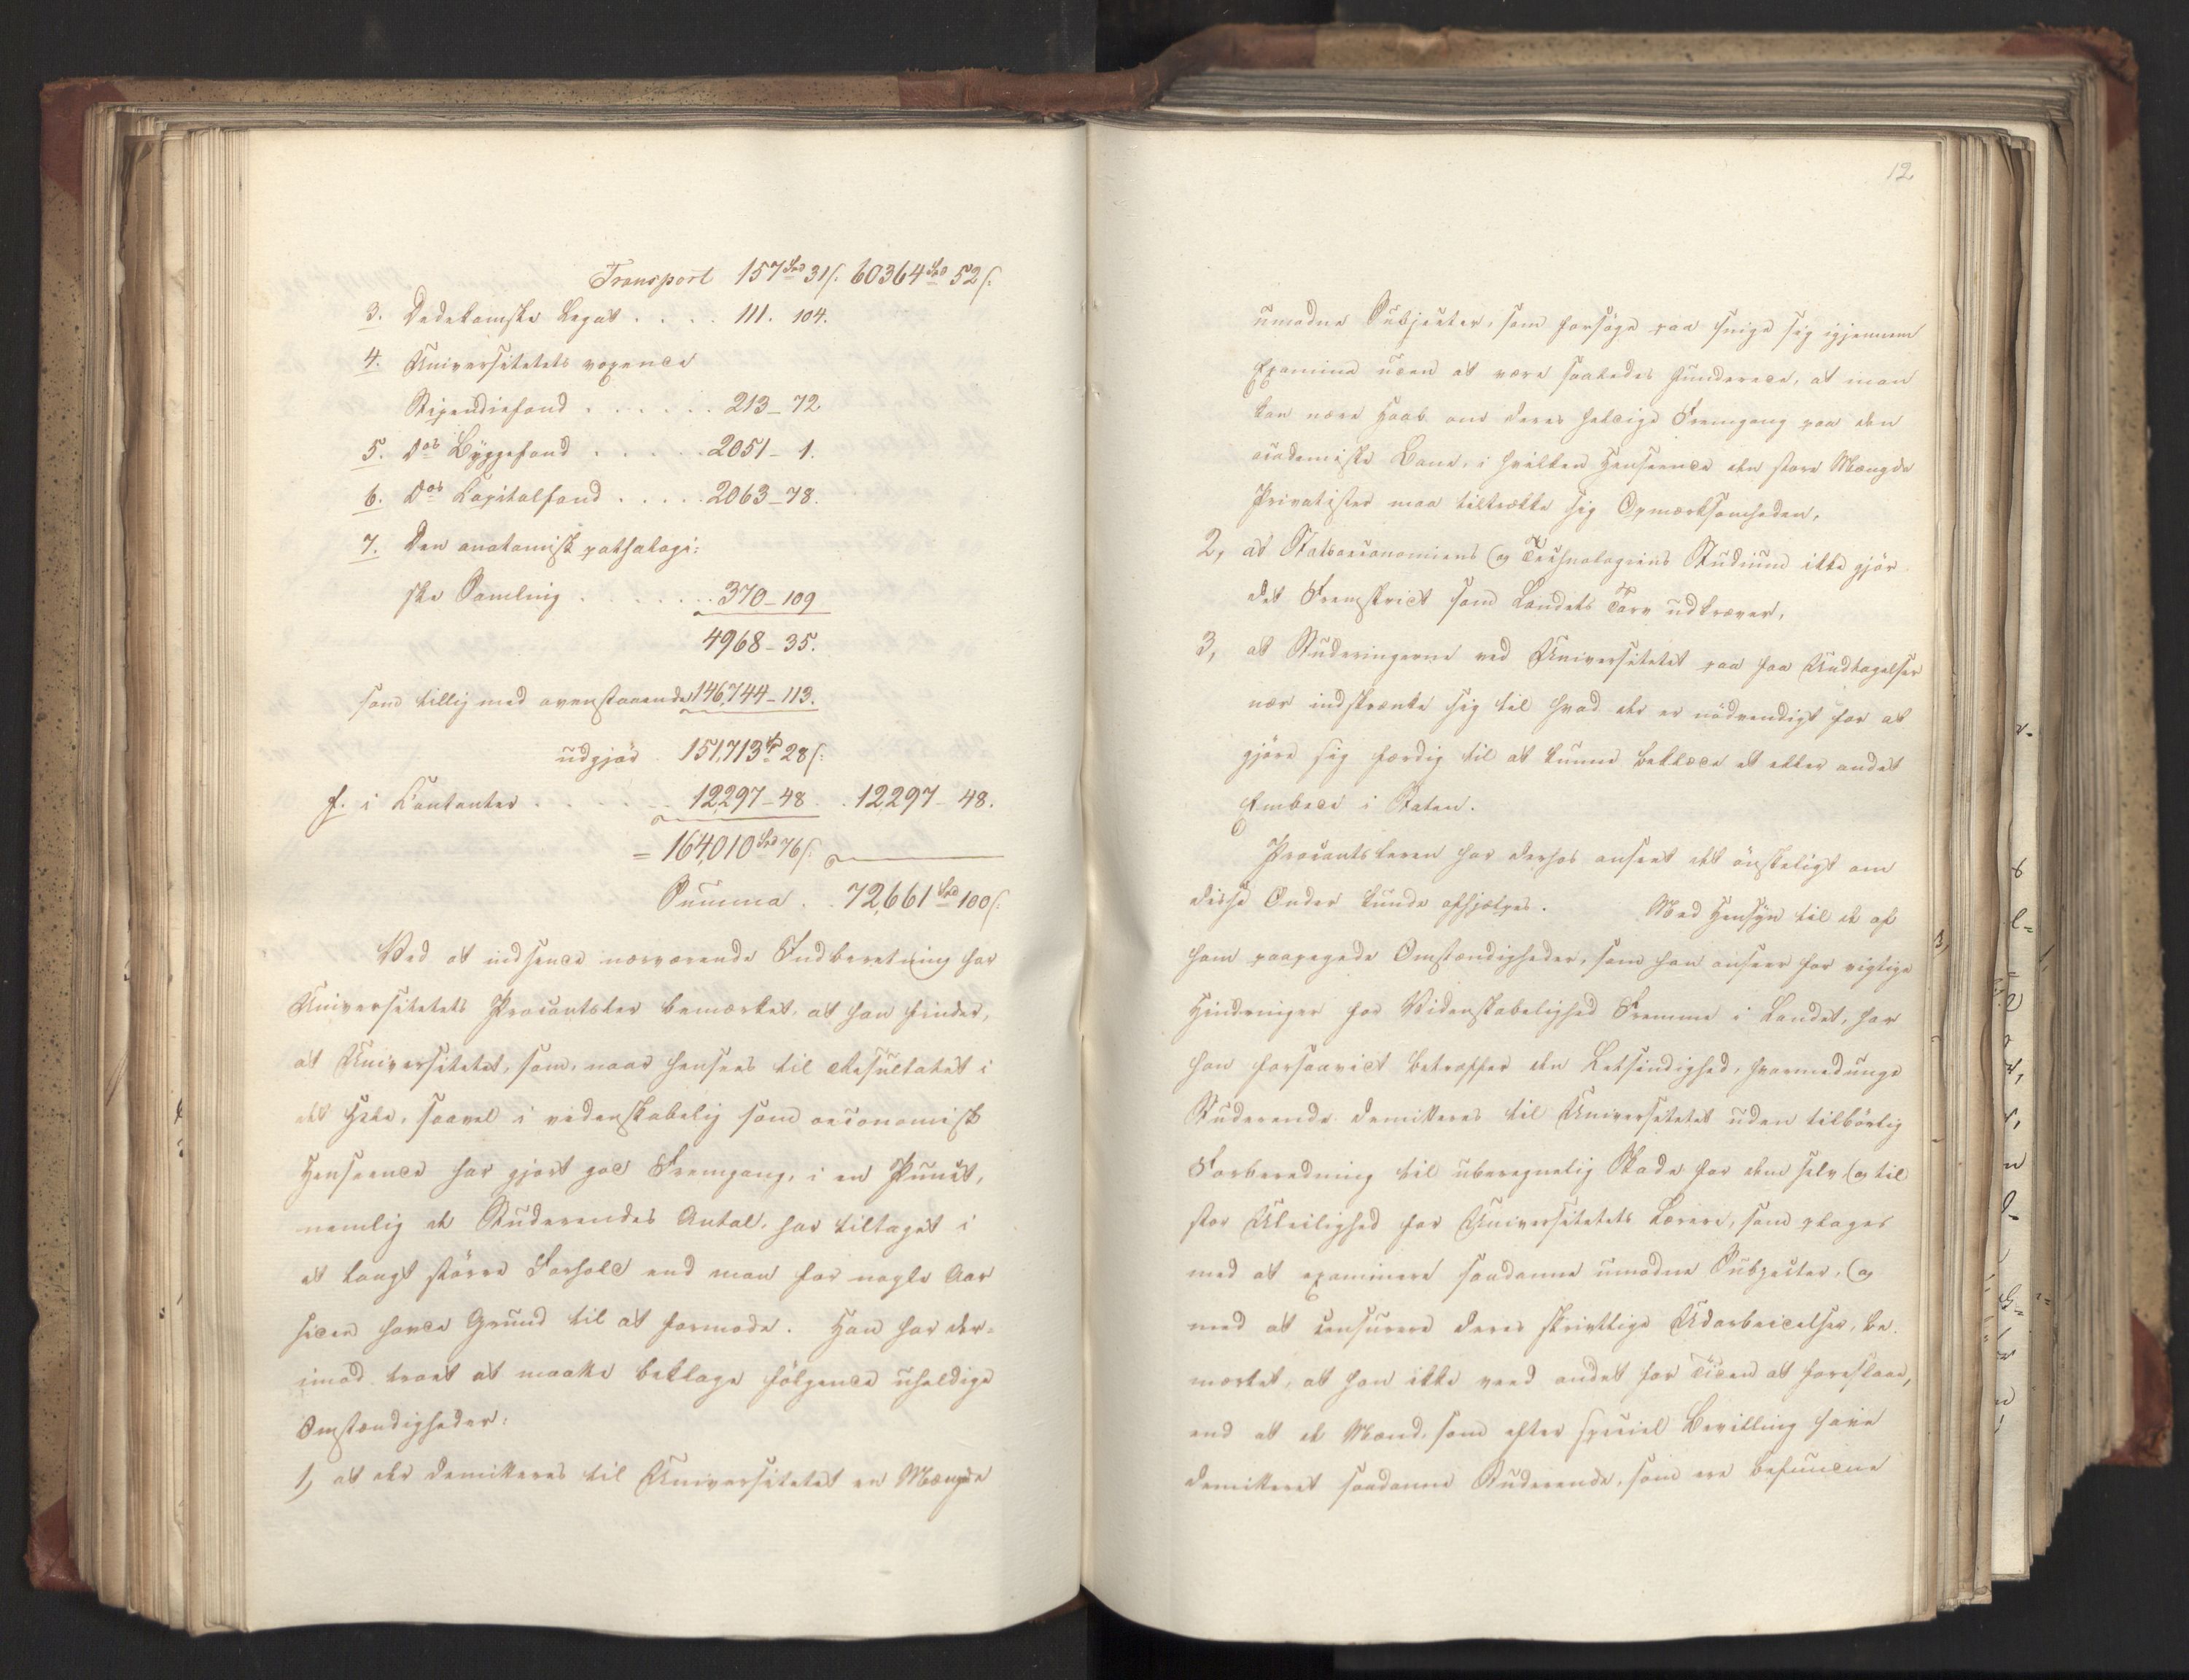 Transport 157 Spd 31 s. 60364 Spd 52 s.
3. Dedekamske Legat . . . . 111. 104.
4. Universitetets voxende
Stipendiefond . . . . . . 213 - 72
5. Dos Byggefond . . . . . 2051 - 1.
6. Dos Kapitalfond . . . . . 2063 - 78.
7. Den anatomisk pathologi-
ske Samling . . . . . . . 370 - 109
4968 - 35.
som tillig med ovenstaaende 146,744 - 113.
udgjør 151,713 Spd 28 s.
f. i Contanter . . . . . . 12,297 - 48 . . 12297 - 48.
= 164,010 Spd 76 s.
Summa . . 72,661 Spd 100 s.
Ved at indsende nærværende Indberetning har
Universitetets Procantsler bemærket, at han finder,
at Universitetet, som, naar hensees til Resultatet i
det Hele, saavel i videnskabelig som oeconomisk
Henseende har gjort god Fremgang, i en Punct,
nemlig de Studerendes Antal, har tiltaget i
et langt større Forhold end man for nogle Aar
siden havde Grund til at formode. Han har der-
imod troet at maatte beklage følgende uheldige
Omstændigheder:
1, at der demitteres til Universitetet en Mængde
12
umodne Subjecter, som forsøge paa snige sig igjennem
Examina uden at være saaledes funderede, at man
kan nære Haab om deres heldige Fremgang paa den
academiske Bane, i hvilken Henseende den store Mængde
Privatister maa tiltrække sig Opmærksomheden,
2, at Statsoeconomiens og Technologiens Studium ikke gjør
det Fremskridt som Landets Tarv udkræver,
3, at Studeringerne ved Universitetet paa faa Undtagelser
nær indskrænke sig til hvad der er nødvendigt for at
gjøre sig færdig til at kunne beklæde et eller andet
Embede i Staten.
Procantsleren har derhos anseet det ønskeligt om
disse Onder kunde afhjælpes. Med Hensyn til de af
ham paapegede Omstændigheder, som han anseer for vigtige
Hindringer for Videnskabelighed Fremme i Landet, har
han forsaavidt betræffer den Letsindighed, hvormed unge
Studerende demitteres til Universitetet uden tilbørlig
Forberedning til uberegnelig Skade for dem selv og til
stor Uleilighed for Universitetets Lærere, som plages
med at examinere saadanne umodne Subjecter, og
med at censurere deres skrivtlige Udarbeidelser, be-
mærket, at han ikke veed andet for Tiden at foreslaae,
end at de Mænd, som efter speciel Bevilling have
demitteret saadanne Studerende, som ere befundne